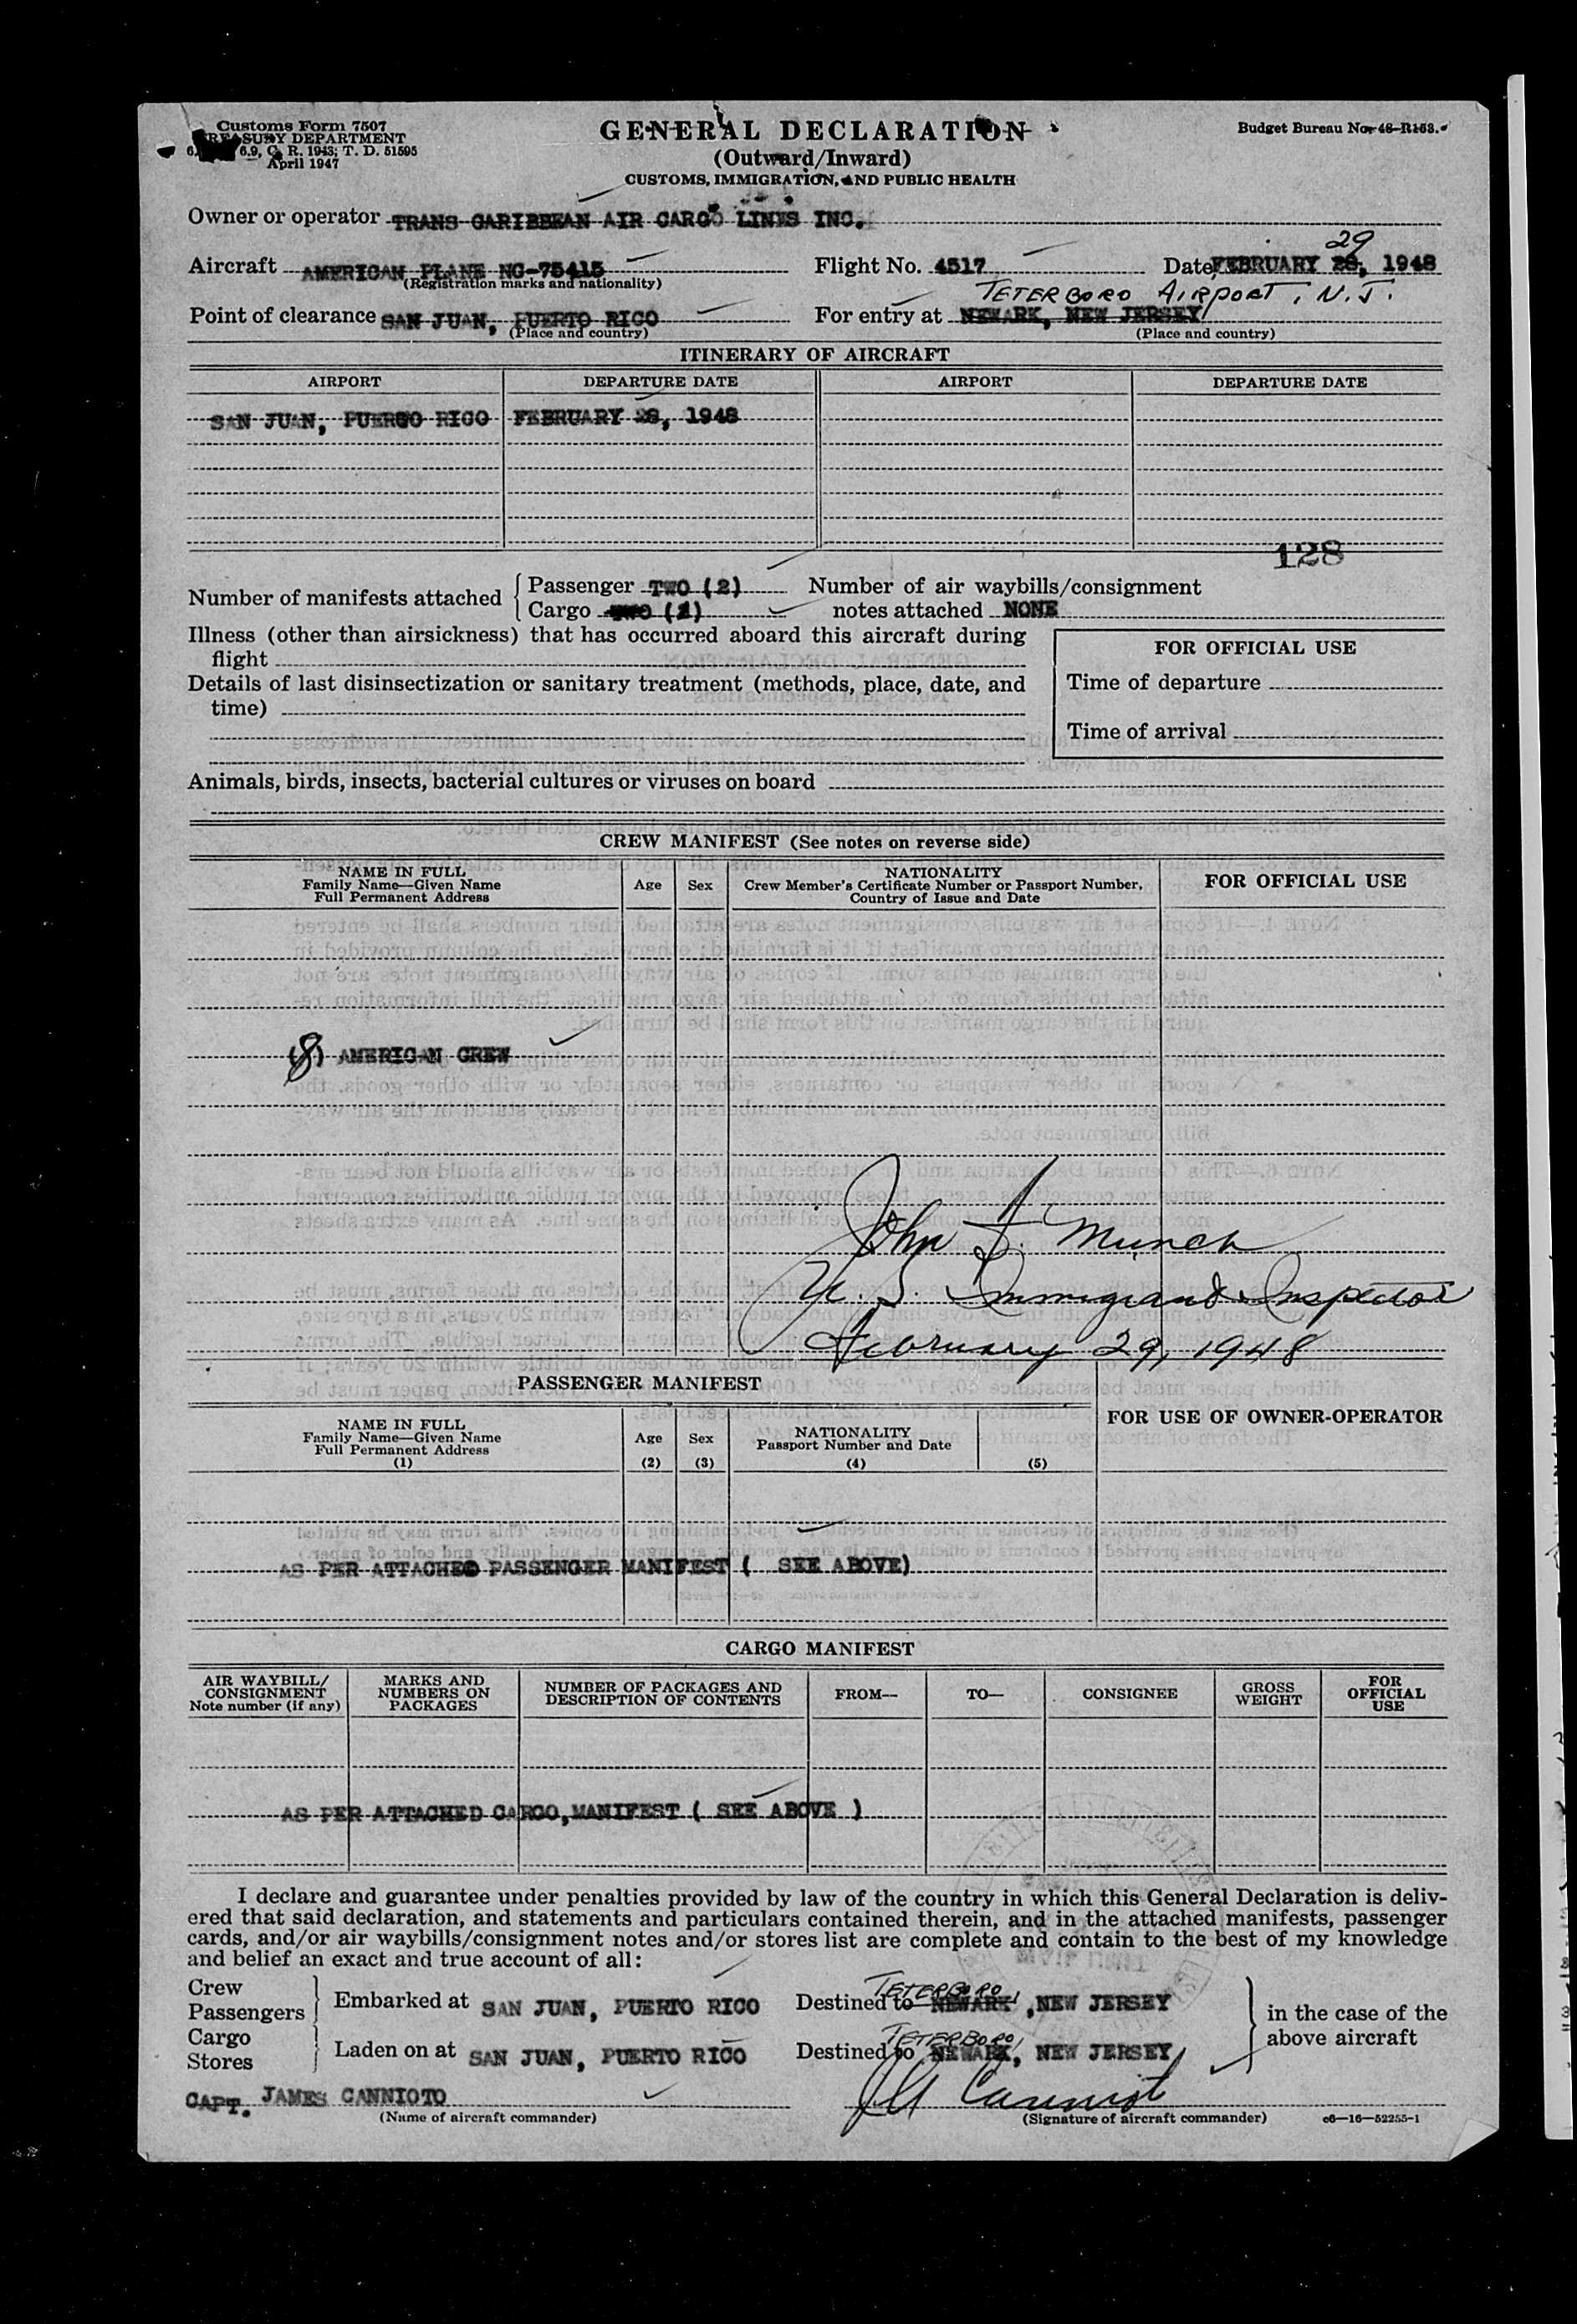 Customs Form 7507
TREASURY DEPARTMENT
6.9, C. R. 1943; T. D. 51595
April 1947
GENERAL DECLARATION
(Outward/Inward)
CUSTOMS, IMMIGRATION, AND PUBLIC HEALTH
Budget Bureau No. 48-R153.
Owner or operator TRANS CARIBBEAN AIR CARGO LINES INC.
29
Aircraft AMERICAN PLANE NC-75415 Flight No. 4517 Date FEBRUARY 28, 1948
(Registration marks and nationality)
TETERBORO AIRPORT, N.J.
Point of clearance SAN JUAN, PUERTO RICO For entry at NEWARK, NEW JERSEY
(Place and country) (Place and country)
ITINERARY OF AIRCRAFT
AIRPORT DEPARTURE DATE AIRPORT DEPARTURE DATE
SAN JUAN, PUERTO RICO FEBRUARY 28, 1948
128
Number of manifests attached Passenger TWO (2) Number of air waybills/consignment
Cargo (1) notes attached NONE
Illness (other than airsickness) that has occurred aboard this aircraft during
flight
FOR OFFICIAL USE
Details of last disinsectization or sanitary treatment (methods, place, date, and
time)
Time of departure
Time of arrival
Animals, birds, insects, bacterial cultures or viruses on board
CREW MANIFEST (See notes on reverse side)
NAME IN FULL
Family Name—Given Name
Full Permanent Address
Age Sex
NATIONALITY
Crew Member's Certificate Number or Passport Number,
Country of Issue and Date
FOR OFFICIAL USE
(8) AMERICAN CREW
John F. Munch
U. S. Immigrant Inspector
February 29, 1948
PASSENGER MANIFEST
FOR USE OF OWNER-OPERATOR
NAME IN FULL
Family Name—Given Name
Full Permanent Address
(1)
Age
(2)
Sex
(3)
NATIONALITY
Passport Number and Date
(4) (5)
AS PER ATTACHED PASSENGER MANIFEST ( SEE ABOVE)
CARGO MANIFEST
AIR WAYBILL/
CONSIGNMENT
Note number (if any)
MARKS AND
NUMBERS ON
PACKAGES
NUMBER OF PACKAGES AND
DESCRIPTION OF CONTENTS
FROM— TO— CONSIGNEE
GROSS
WEIGHT
FOR
OFFICIAL
USE
AS PER ATTACHED CARGO, MANIFEST ( SEE ABOVE )
I declare and guarantee under penalties provided by law of the country in which this General Declaration is deliv-
ered that said declaration, and statements and particulars contained therein, and in the attached manifests, passenger
cards, and/or air waybills/consignment notes and/or stores list are complete and contain to the best of my knowledge
and belief an exact and true account of all:
Crew
Passengers
Embarked at SAN JUAN, PUERTO RICO
TETERBORO,
Destined to NEWARK, NEW JERSEY
Cargo
Stores
Laden on at SAN JUAN, PUERTO RICO
TETERBORO,
Destined to NEWARK, NEW JERSEY
in the case of the
above aircraft
CAPT. JAMES CANNIOTO
(Name of aircraft commander)
(Signature of aircraft commander)
c6—16—52255-1